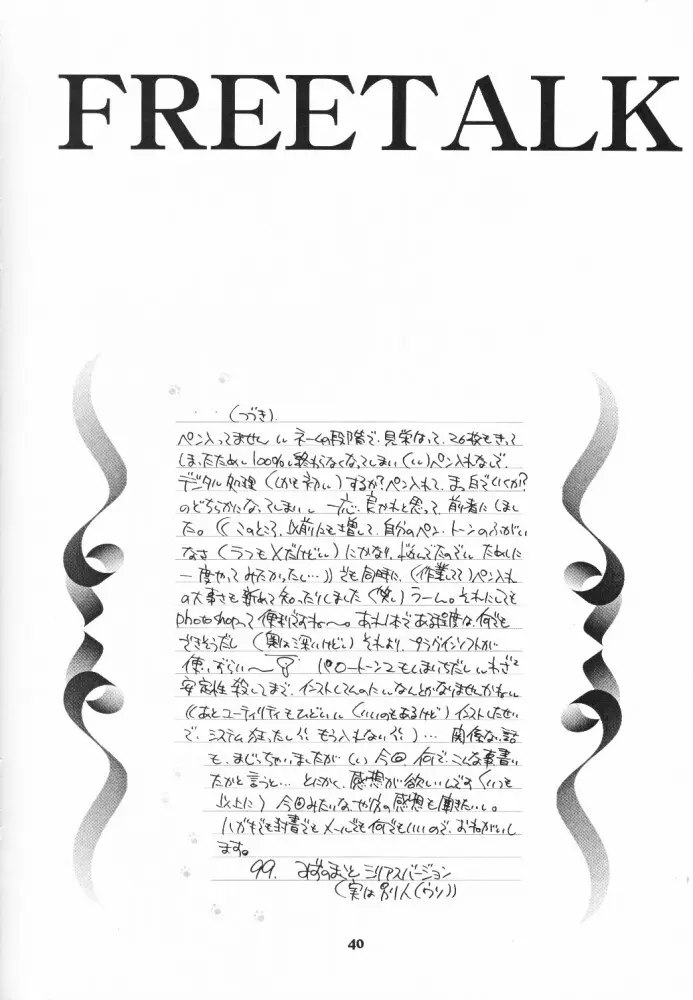 FREETALK
・・(つづき).
ペン入ってません いい ネームの段階で、見栄はって、26枚もきって
しまったため、100% 終わらなくなってしまい(いい)ペン入れなしで、
デジタル処理(しかも初い)するか?ペン入れて、まっ白でいくか?
のどちらかになってしまい、一応、良かれと思って、前者にしまし
た。((このところ、以前にも増して、自分のペン、トーンのふがい
なさ(うつもXだけどい)にかなり、悩んでたのでい ために
一度やってみたかったい…))でも同時に、(作業して)ペン入れ
の大事さも新めて知ったりしました(笑い)うーん。それにしても
photoshopって便利ですね〜。あれ1本である程度な何でも
できそうだし(奥は深いけどい)それより、プラグインソフトが
使いづらい〜 パワートーン2もしまいちだしい わざと
安定性殺してまで、インストしてんのにい なんとかなりませんかねい
((あとユーティリティもひどいい(いいのもあるけど)インストしたせい
で、システム狂ったしい もう入れないい)…関係ない話
も、まじっちゃいましたが(い)今回何で、こんな事書い
たかと言うと… とにかく、感想が欲しいんです(いつも
以上に)今回みたいなやり方の感想も聞きたいし。
ハガキでも封書でもメールでも何でもいいので、おねがいし
ます。
99. みずのまこと シリアスバージョン
(実は別人(ウソ))
40